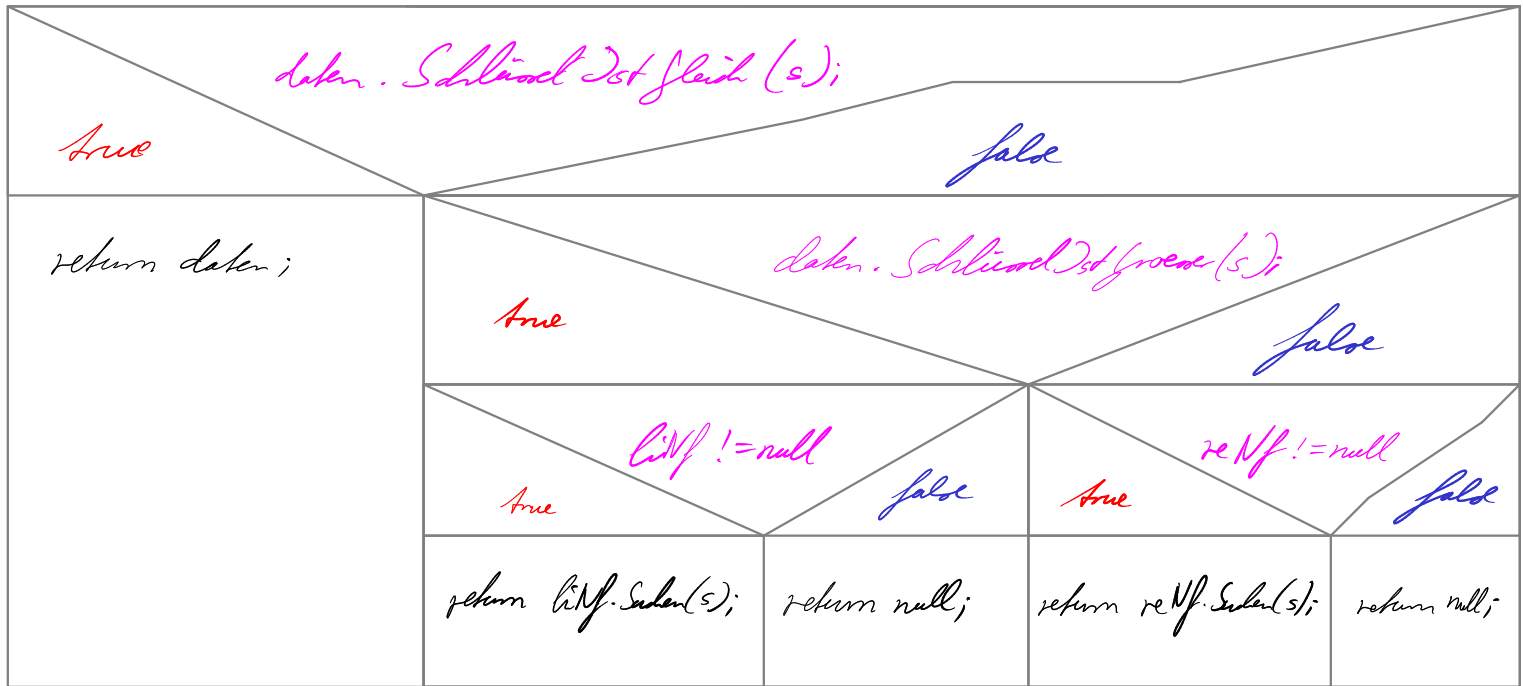 daten.SchlüsselIstGleich(s);
true
false
return daten;
daten.SchlüsselIstGroesser(s);
true
false
liNf!=null
true
false
reNf!=null
true
false
return liNf.Suchen(s);
return null;
return reNf.Suchen(s);
return null;